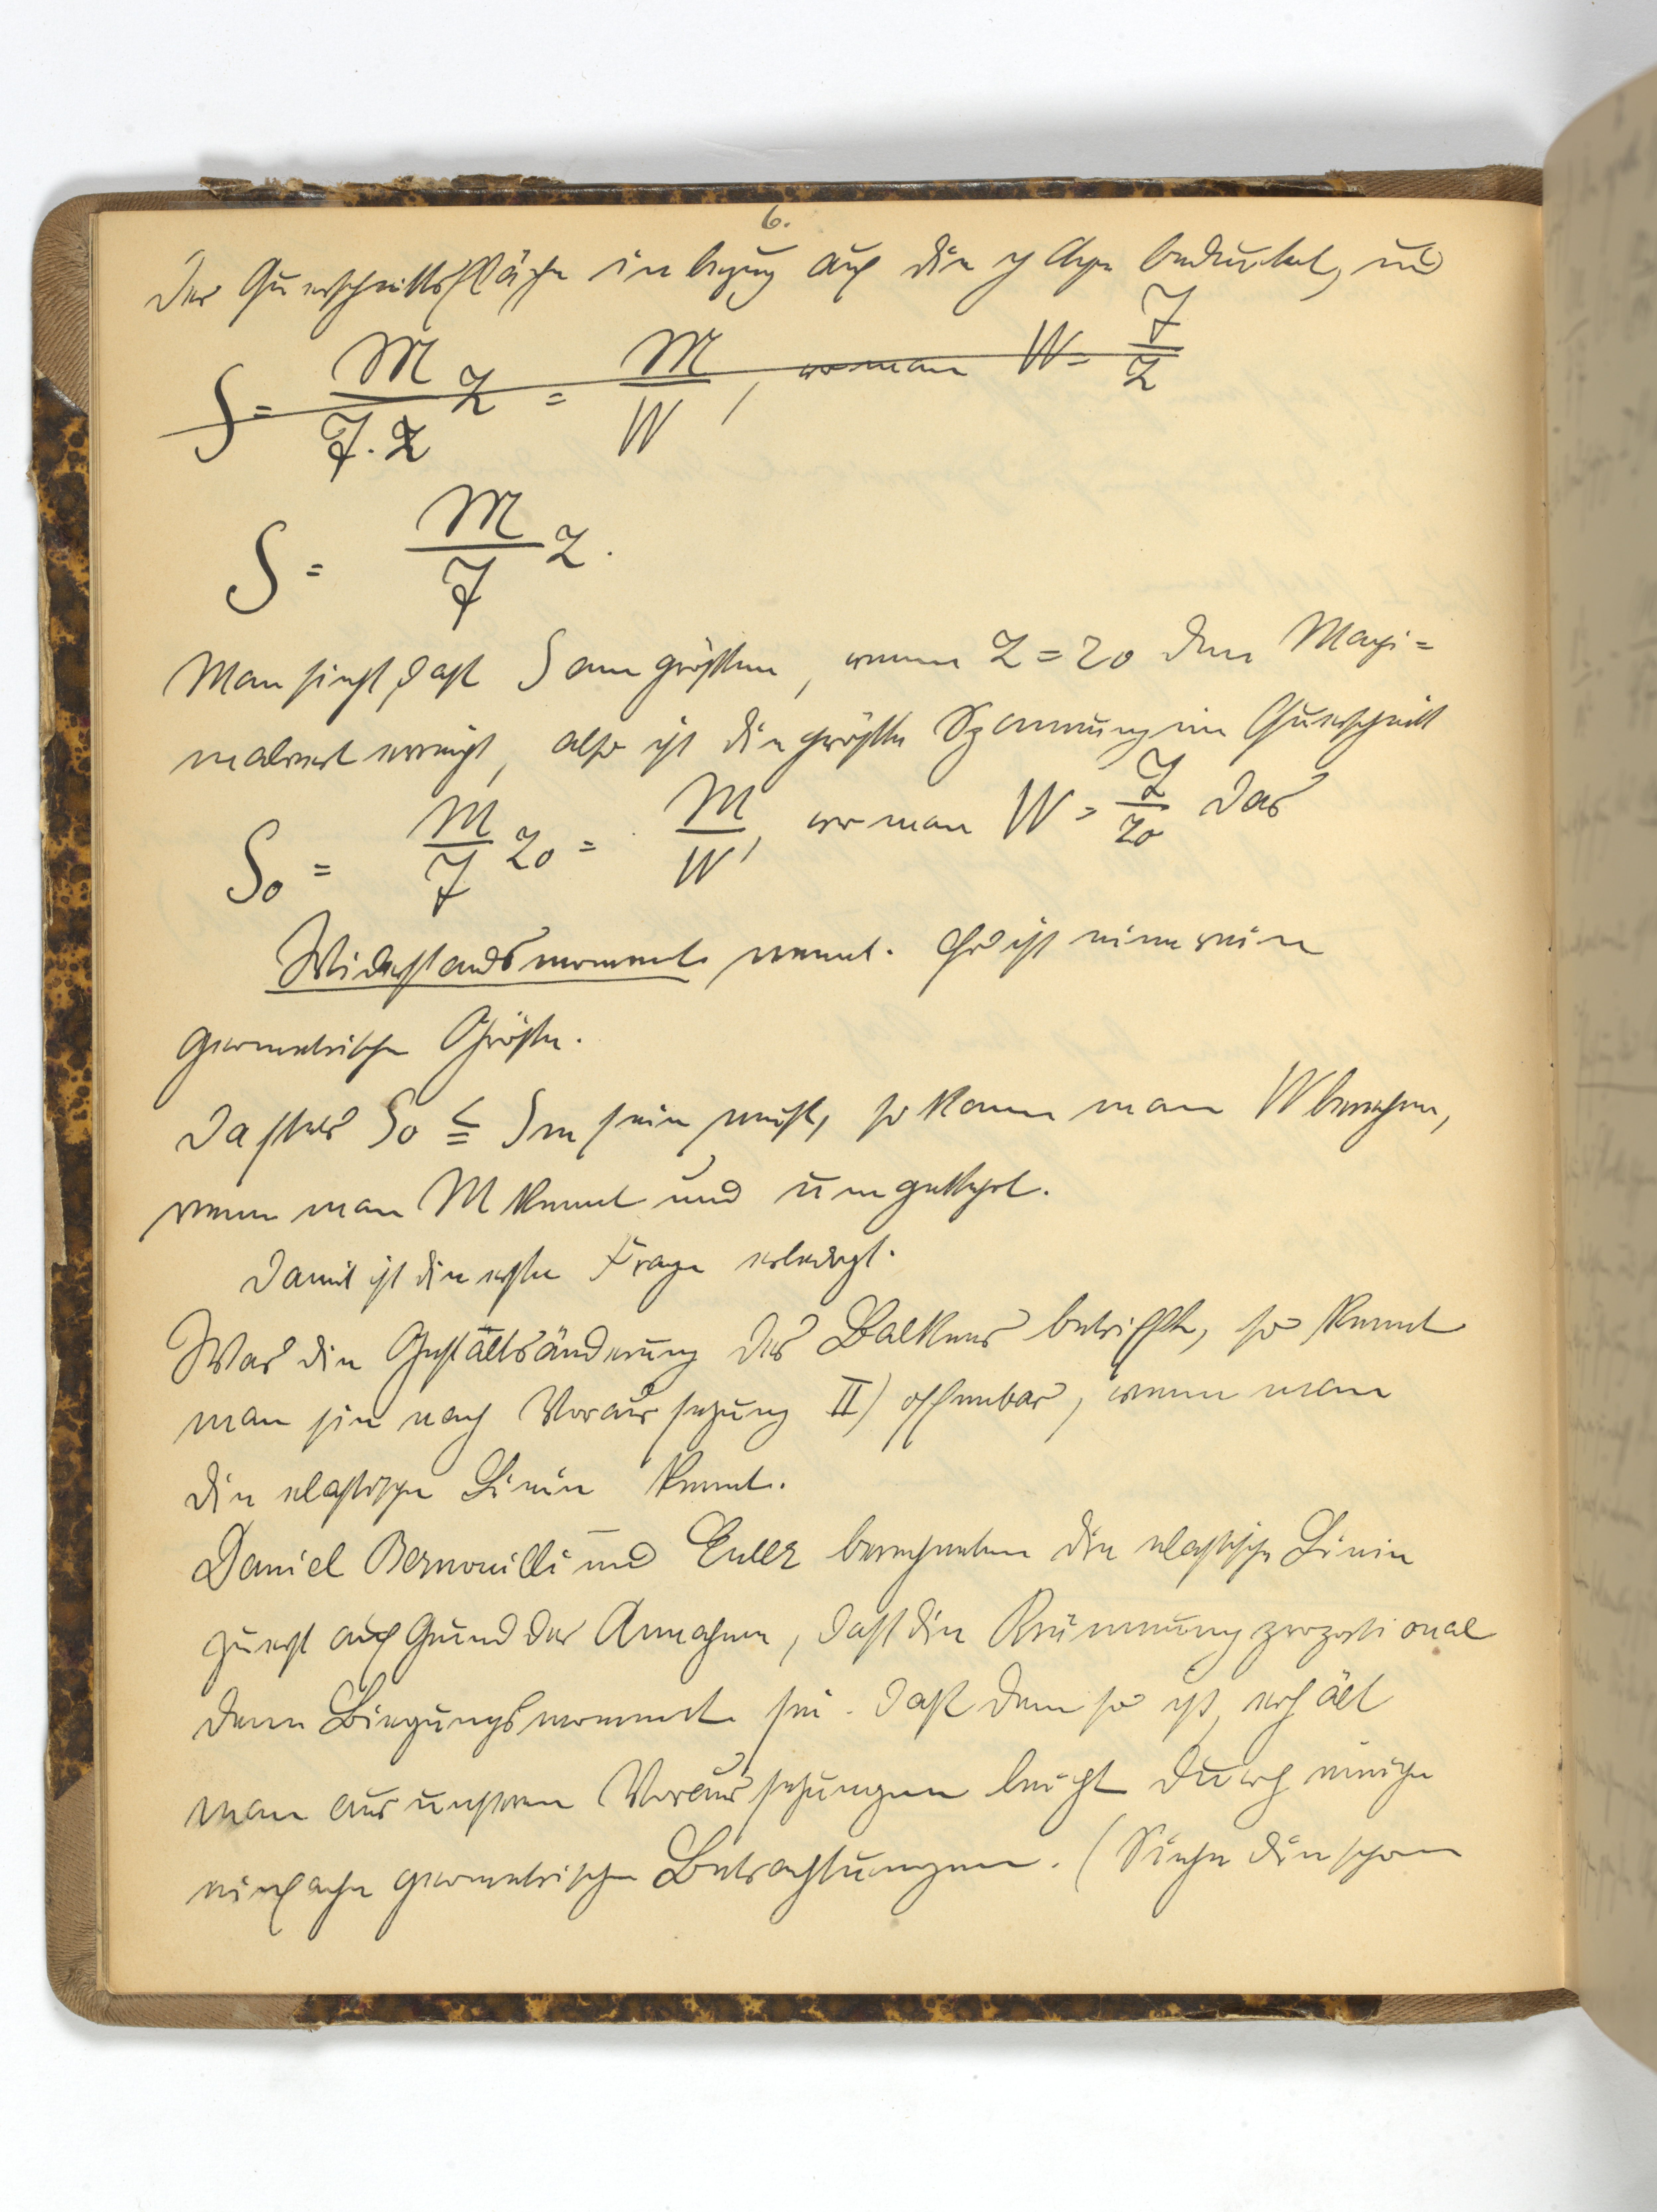 6.
der Querschnittsfläche in bezug auf die y Achse bedeutet, und
S = M/J·Z Z = M/W, wo man W = J/Z
S = M/J Z.
Man sieht, daß S am größten, wenn Z = Z0 den Maxi=
malwert erreicht, also ist die größte Spannung im Querschnitt
S0 = M/J Z0 = M/W, wo man W = J/Z0 das
Widerstandsmoment nennt. Es ist eine rein
geometrische Größe.
Da stets S0 ≦ Sm sein muß, so kann man W berechnen,
wenn man M kennt und umgekehrt.
Damit ist die erste Frage erledigt.
Was die Gestaltsänderung des Balkens betrifft, so kennt
man sie nach Voraussetzung II) offenbar, wenn man
die elastische Linie kennt.
Daniel Bernouilli und Euler berechneten die elastische Linie
zuerst auf Grund der Annahme, daß die Krümmung proportional
dem Biegungsmoment sei. Daß dem so ist, erhält
man aus unseren Voraussetzungen leicht durch einige
einfache geometrische Betrachtungen. (Siehe die schon